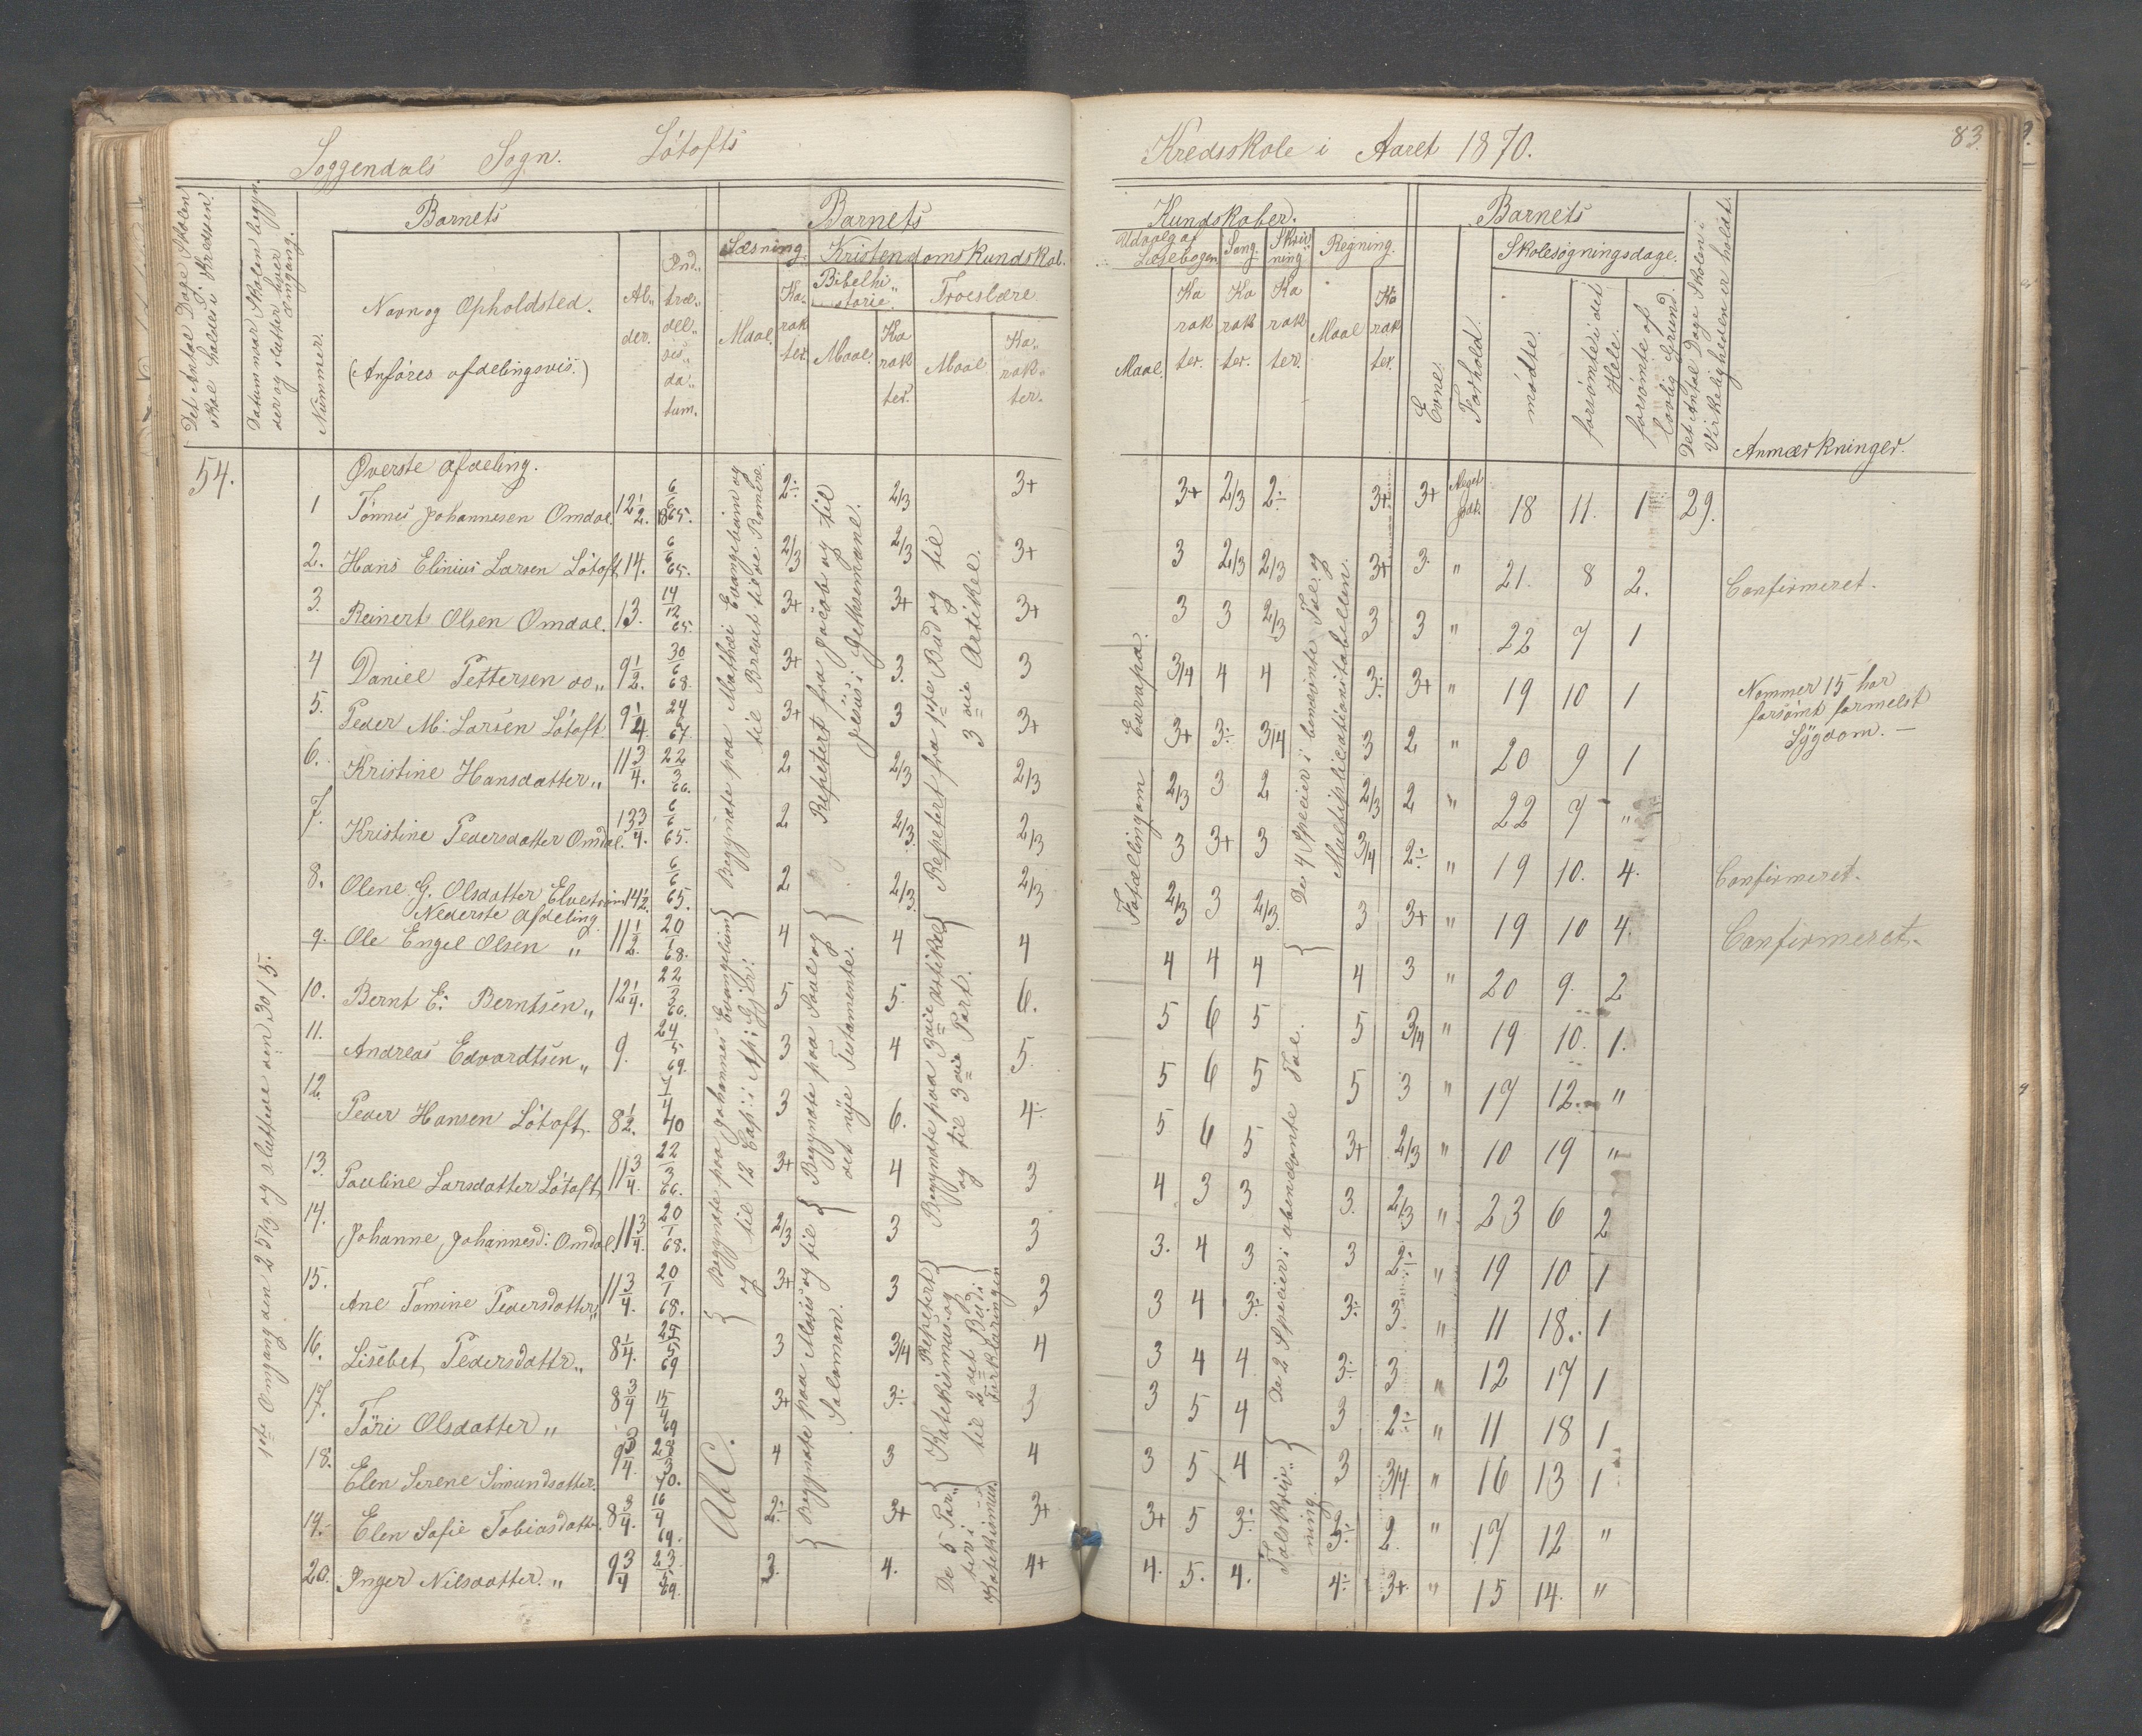 Soggendals Sogn. Lótofts Kredsskole i Aaret 1870. 83.
Det Antal Dage Skolen skal holdes i Kredsen.
Datum naar Skolen begynder og slutter hver Omgang.
Nummer.
Barnets
Navn og Opholdsted.
(Anføres afdelingsvis.)
Alder.
Indtrædelsesdatum.
Barnets Kundskaber.
Læsning. Maal. Karakter.
Kristendomskundskab.
Bibelhistorie. Maal. Karakter.
Troeslære Maal Karakter.
Udvalg af Læsebogen Maal. Karakter.
Sang. Karakter.
Skrivning Karakter.
Regning. Maal Karakter.
Barnets
Evne.
Forhold.
Skolesøgningsdage.
mødte.
forsømte i det Hele.
forsømte af lovlig Grund.
Det Antal Dage Skolen i Virkeligheden er holdt.
Anmærkninger.
54.
1ste Omgang den 25/3 og sluttede den 30/5.
Øverste Afdeling.
1 Tönnes Johannesen Omdal. 12 1/2. 6/6 1865. 2÷ 2/3 3+ 3+ 2/3 2÷ 3+ 3+ Meget godt. 18 11. 1 29.
2. Hans Elinius Larsen Lótoft 14. 6/6 65. 2/3 2/3 3+ 3 2/3 2/3 3+ 3 " 21. 8 2. Confirmeret.
3. Reinert Olsen Omdal. 13. 14/12 65. 3+ 3+ 3+ 3 3 2/3 3 3 " 22 7 1
4 Daniel Pettersen do " 9 1/2. 30/6 68. 3+ 3. 3 3/4 4 4 3÷ 3+ " 19 10 1
Nommer 15 har forsømt formelst Sygdom. —
5. Peder M: Larsen Lótoft 9 1/4 24/ 67. 3+ 3 3+ 3+ 3÷ 3/4 3 2 " 20 9 1
6. Kristine Hansdatter " 11 3/4. 22/3 66. 2 2/3 2/3 2/3 3 2 2/3 2 " 22 7 "
7. Kristine Pedersdatter Omdal. 13 3/4. 6/6 65. 2 2/3. 2/3 3 3+ 3 3/4 2÷ " 19 10. 4. Confirmeret.
8. Olene G. Olsdatter 14 1/2. 6/6 65. 2 2/3. 2/3 2/3 3 2/3 3 3+ " 19 10 4. Confirmeret.
Nederste Afdeling
9. Ole Engel Olsen " 11 1/2. 20/1 68. 4 4 4 4 4 4 4 3 " 20 9. 2
10. Bernt E: Berntsen " 12 1/4. 22/3 66. 5 5. 6. 5 6 5 5 3/4 " 19 10. 1.
11. Andreas Edvardtsen " 9. 24/5 69. 3 4 5. 5 6 5 5 3 " 17 12. "
12. Peder Hansen Lótoft. 8 1/2. 4/4 70 3 6. 4÷ 5 6 5 3+ 2/3 " 10 19 "
13. Pauline Larsdatter Lótoft 11 3/4. 22/3 66. 3+ 4 3 4 3 3 3. 2/3 " 23 6 2
14. Johanne Johannesd: Omdal. 11 3/4. 20/1 68. 2/3 3 3 3. 4 3 3 2÷ " 19 10 1
15. Ane Tomine Pedersdatter " 11 3/4. 20/1 68. 3+ 3 3 3 4 3÷ 3÷ 3. " 11 18. 1
16. Lisebet Pedersdattr " 8 1/4. 24/5 69 3 3/4 4 3 4 4 3÷ 3 " 12 17 1
17. Töri Olsdatter " 8 3/4 15/4 69 3+ 3÷ 3 3 5 4 3 2÷ " 11 18 1
18. Elen Serene Simundsdatter. 9 3/4 28/3 70. 4 3 4 3 5 4 3 3/4 " 16 13 1
19. Elen Sofie Tobiasdatter. 8 3/4. 16/4 69. 2÷ 3+ 3+ 3+ 5 3÷ 3÷ 2. " 17 12 "
20. Inger Nilsdatter. " 9 3/4 23/5 69. 3. 4. 4+ 4. 5. 4. 4÷ 3+ " 15 14. "
Begyndte paa Mathæi Evangelium og til Brevet til de Romere.
Begyndte paa Johannes Evangelium og til 12 Cap: i Ap: Gj:
AbC.
Repetert fra Jacob og til Jesus i Gethsemane.
Begyndte paa Saul og det nye Testamente.
Begyndte paa Moses og til Salomon.
Repetert fra 1ste Bud og til 3die Artikel.
Begyndte paa 3die Artikel og til 3die Part.
Repetert Katekismus og til 2det Bud i Forklaringen
De 5 Parter i Katekismus.
Fotællingom Europa.
De 4 Specier i benævnte Tal og Multiplicationstabellen.
De 2 Specier i ubenævnte Tal.
Talskrivning.